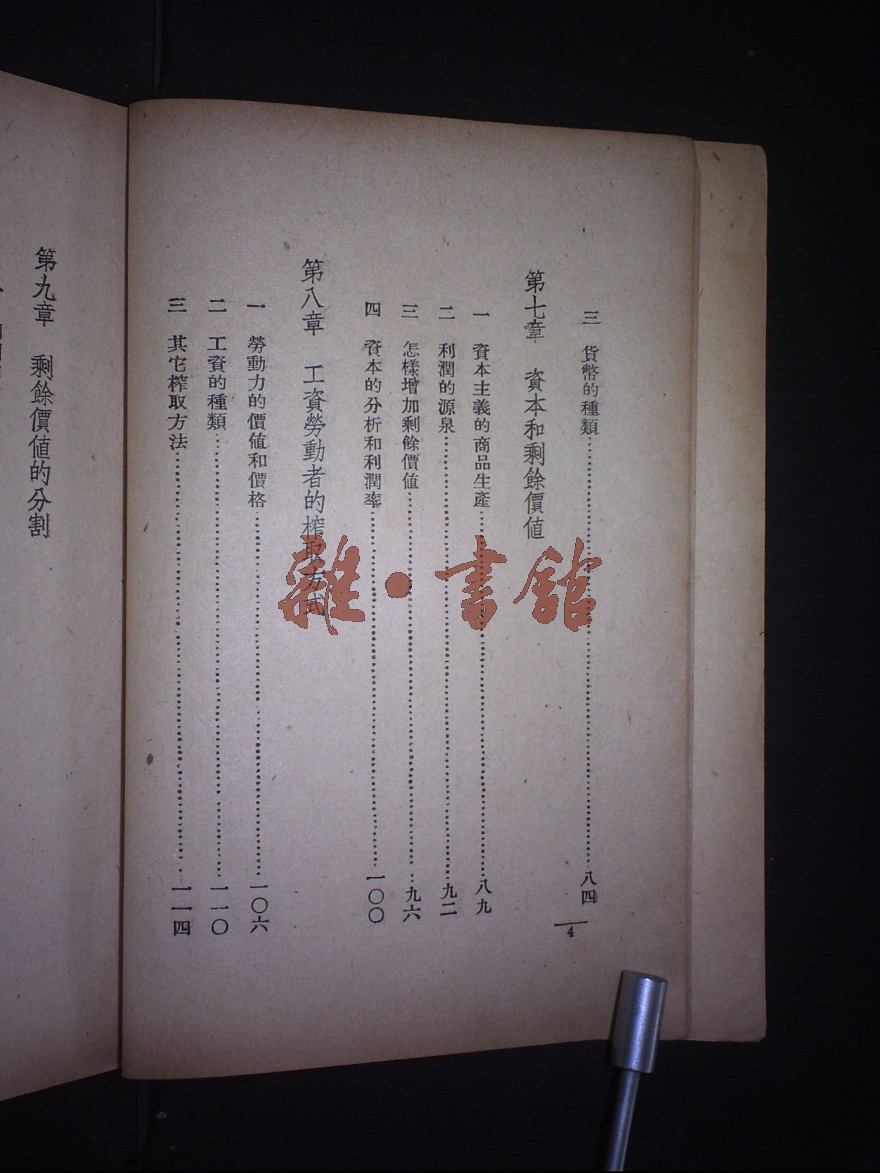 三 貨幣的種類……八四
第七章 資本和剩餘價値
一 資本主義的商品生產……八九
二 利潤的源泉……九二
三 怎樣增加剩餘價値……九六
四 資本的分析和利潤率……一〇〇
第八章 工資勞動者的榨取方式
一 勞動力的價値和價格……一〇六
二 工資的種類……一一〇
三 其它榨取方法……一一四
4
第九章 剩餘價値的分割
雜·書館